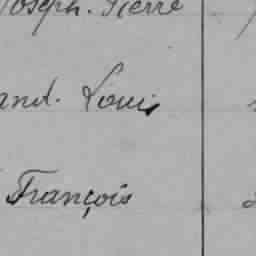 Joseph. Pierre
and. Louis
François